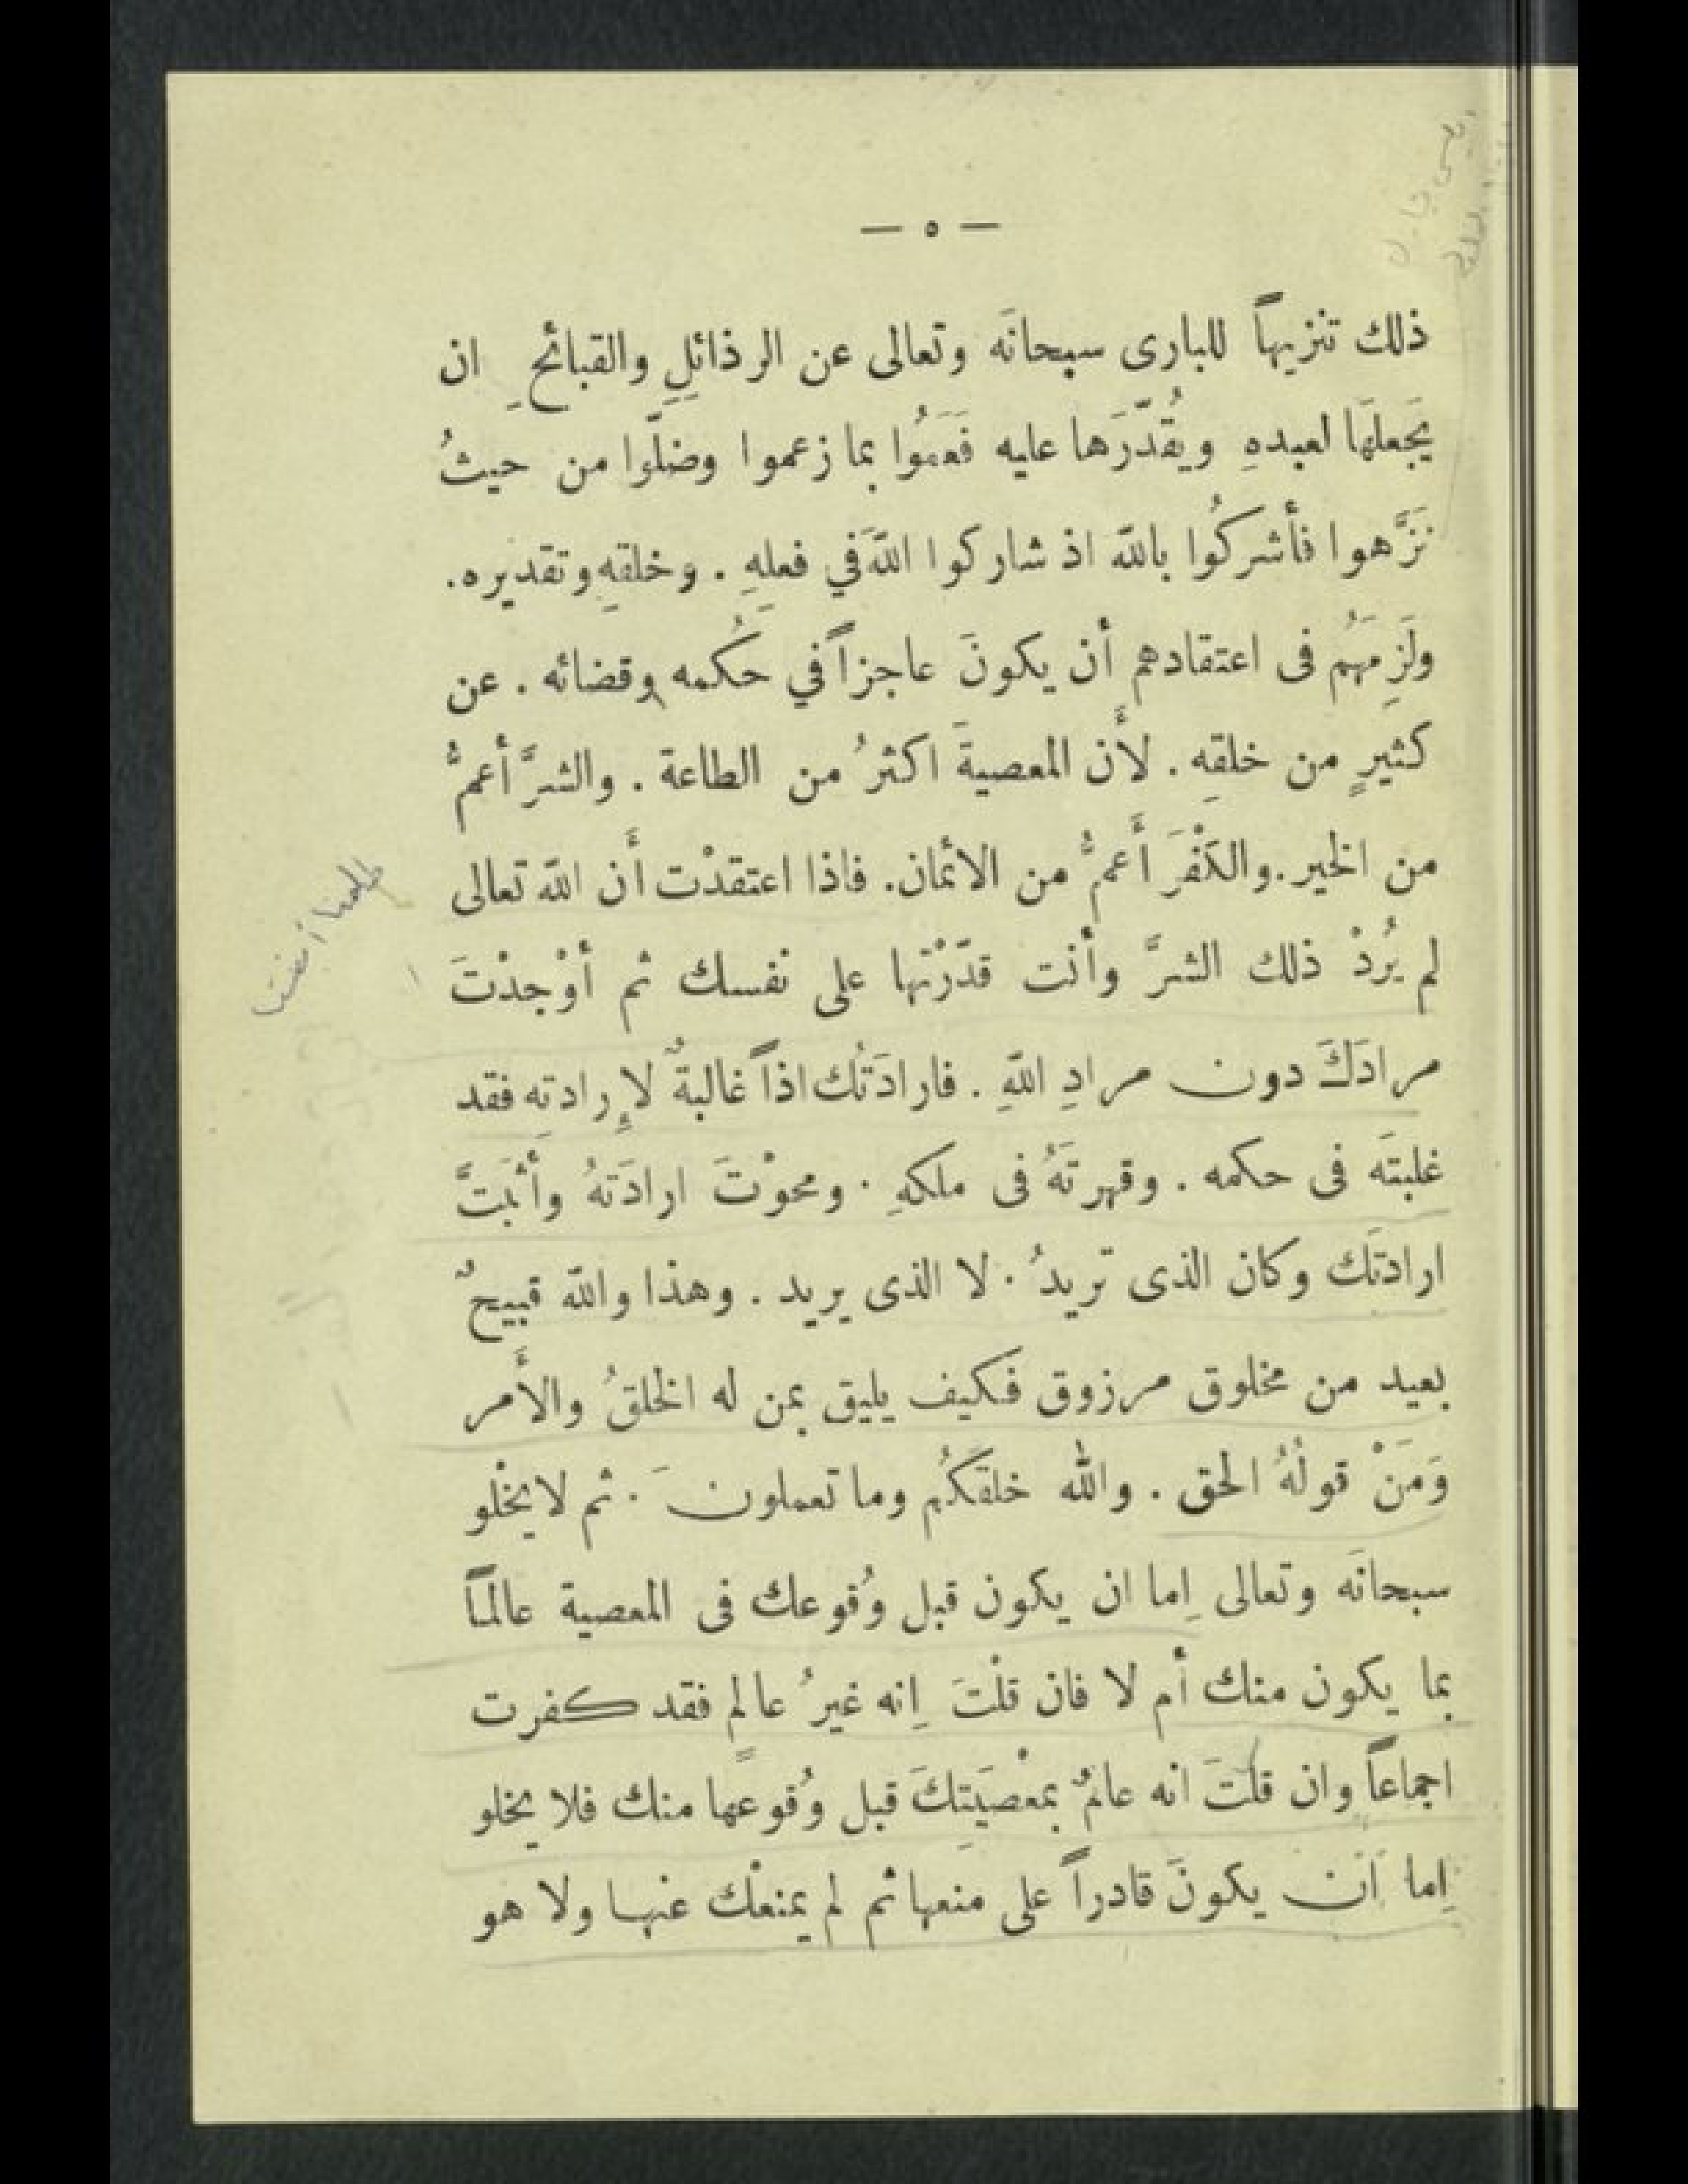 — ٥ —
ذلك تنزيهاً للبارى سبحانَه وتعالى عن الرذائلِ والقبائحِ ان
يَجعلَها لعبدهِ ويُقدّرَها عليه فَعَمُوا بما زعموا وضلّوا من حيثُ
نَزَّهوا فأشركُوا باللّه اذ شاركوا اللّهَ في فعلهِ . وخلقهِ وتقديره.
ولَزِمَهُم فى اعتقادهم أن يكونَ عاجزاً في حكُمه وقضائه . عن
كثيرٍ من خلقهِ . لأَن المعصيةَ اكثرُ من الطاعة . والشرَّ أعمُّ
من الخير . والكفْرَ أَعمُّ من الائمان. فاذا اعتقدْت أَن اللّه تعالى
لم يُردْ ذلك الشرَّ وأنت قدّرْتها على نفسك ثم أوْجدْتَ
مرادَكَ دون مرادِ اللّهِ . فارادَتُك اذاً غالبةٌ لإرادتِه فقد
غلبتَه فى حكمه . وقهرتَهُ فى ملكهِ . ومحوْتَ ارادَتهُ وأَثْبَتَّ
ارادتَك وكان الذى تريدُ . لا الذى يريد . وهذا واللّه قبيحٌ
بعيد من مخلوق مرزوق فكيف يليق بمن له الخلقُ والأَمر
وَمَنْ قولُهُ الحق . واللّٰه خلقَكُم وما تعملونَ . ثم لا يخْلو
سبحانَه وتعالى إِما ان يكون قبل وُقوعك فى المعصية عالمًا
بما يكون منك أم لا فان قلْتَ إِنه غيرُ عالمٍ فقد كفرت
اجماعاً وان قلتَ انه عالمٌ بمعْصيَتِكَ قبل وُقوعَها منك فلا يخلو
إِما أن يكونَ قادراً على منعها ثم لم يمنعْك عنها ولا هو